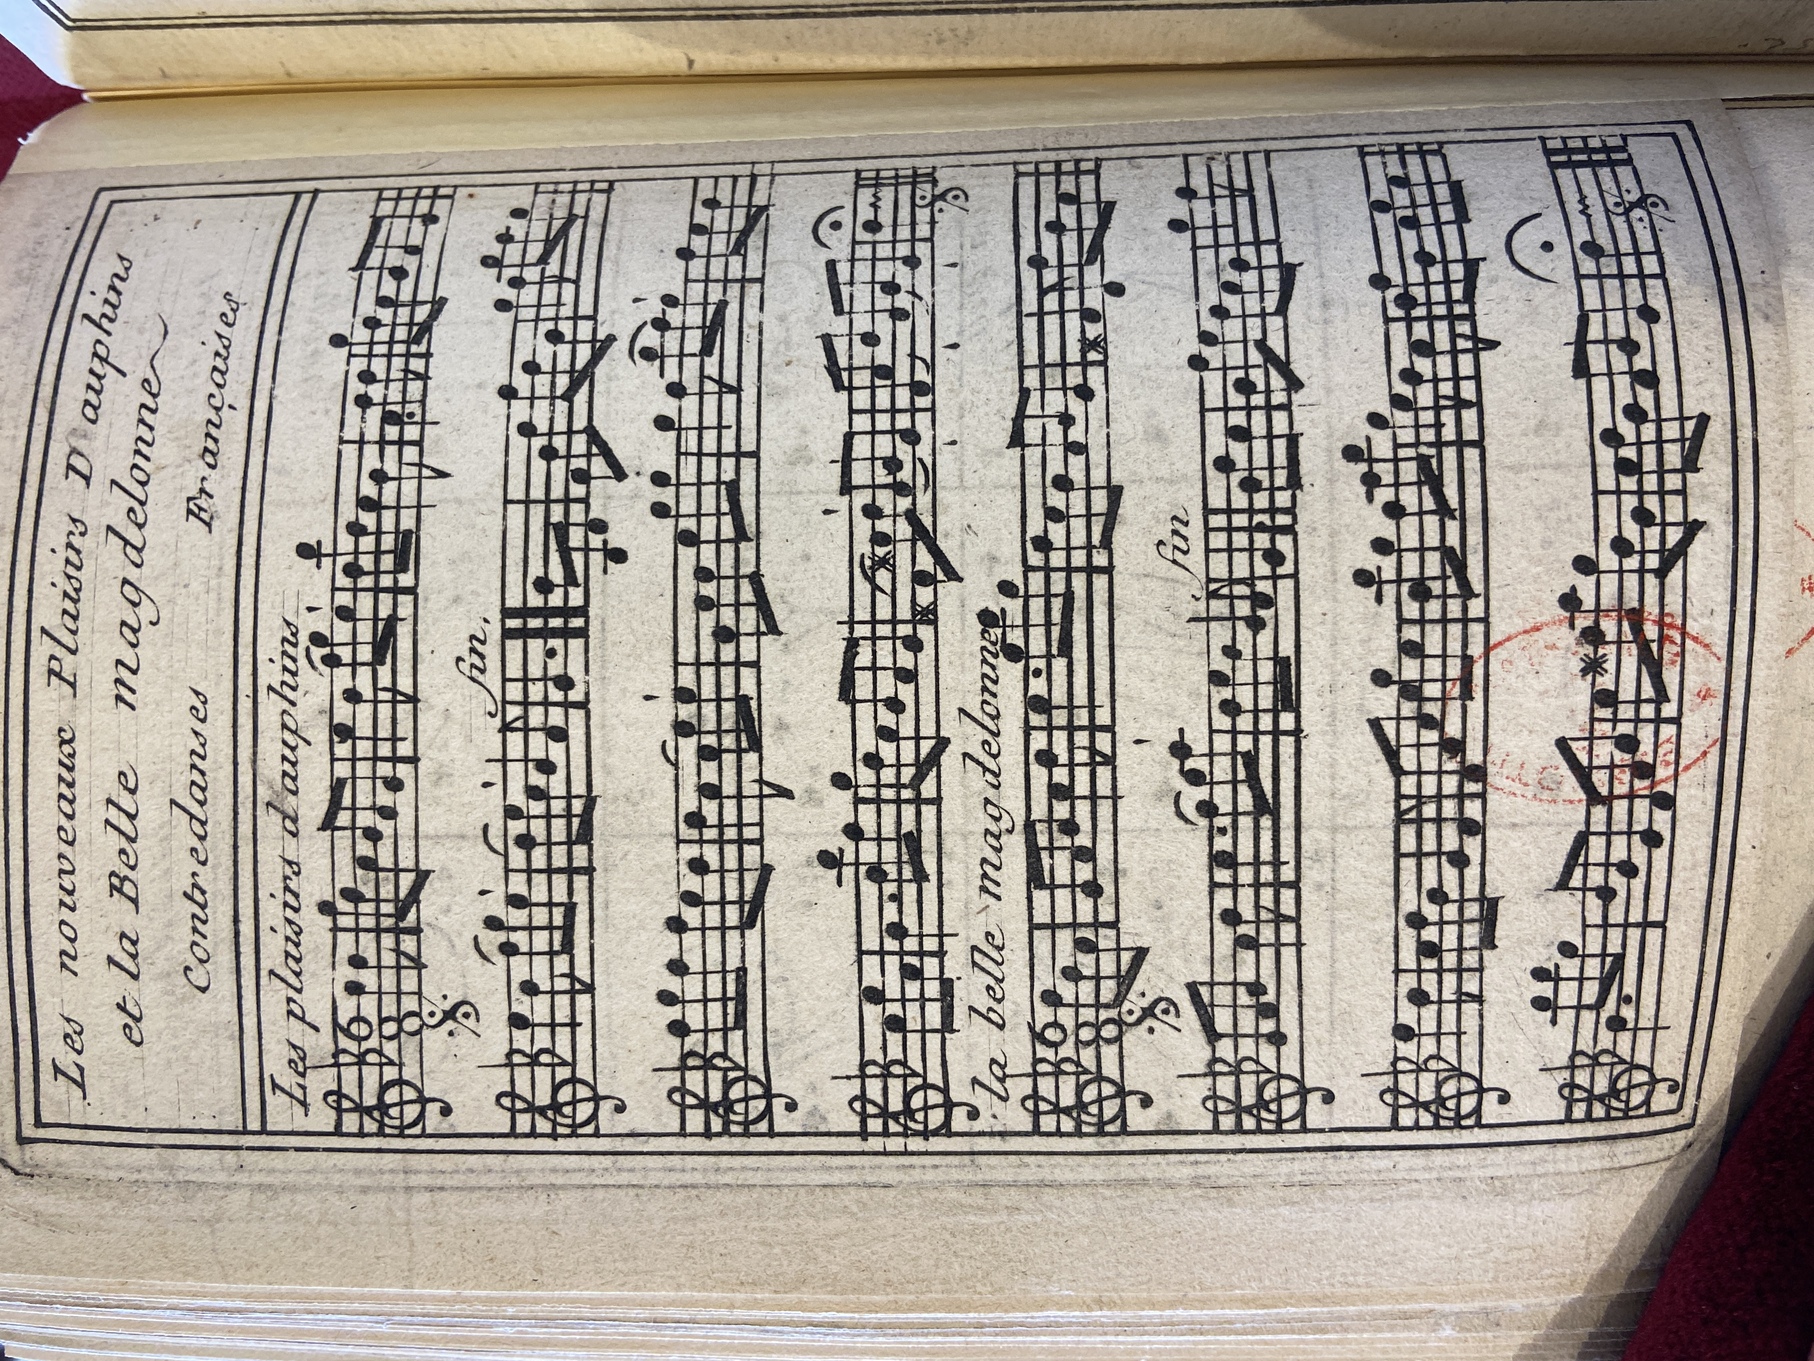 Les nouveaux Plaisirs D'auphins
et la Belle magdelonne
Contredanses Françaises
Les plaisirs d'auphins
6
8
fin.
la belle magdelonne
6
8
fin